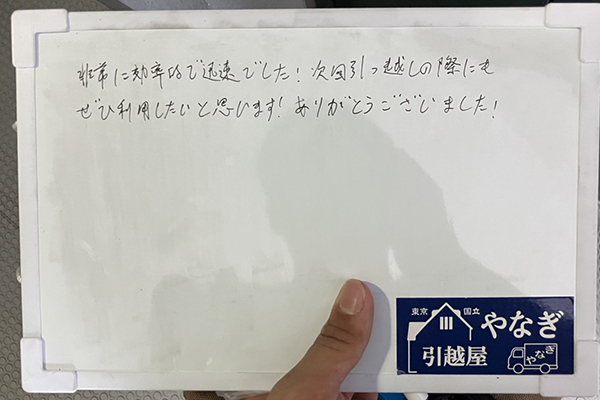 非常に効率的で迅速でした！次回引っ越しの際にも
ぜひ利用したいと思います！ありがとうございました！
東京 国立
やなぎ
引越屋
やなぎ